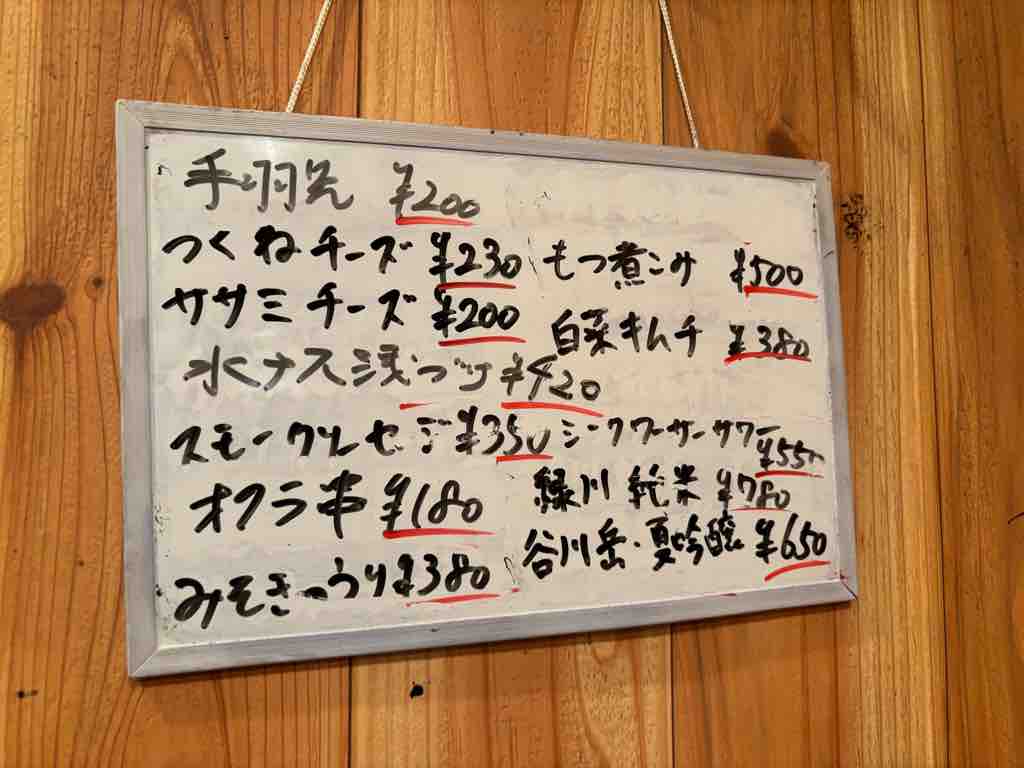 手羽先 ¥200
つくねチーズ ¥230
ササミチーズ ¥200
水ナス浅づけ ¥420
スモークソーセージ ¥350
オクラ串 ¥180
みそきゅうり ¥380
もつ煮こみ ¥500
白菜キムチ ¥380
シークワーサーサワー ¥550
緑川 純米 ¥780
谷川岳・夏吟醸 ¥650